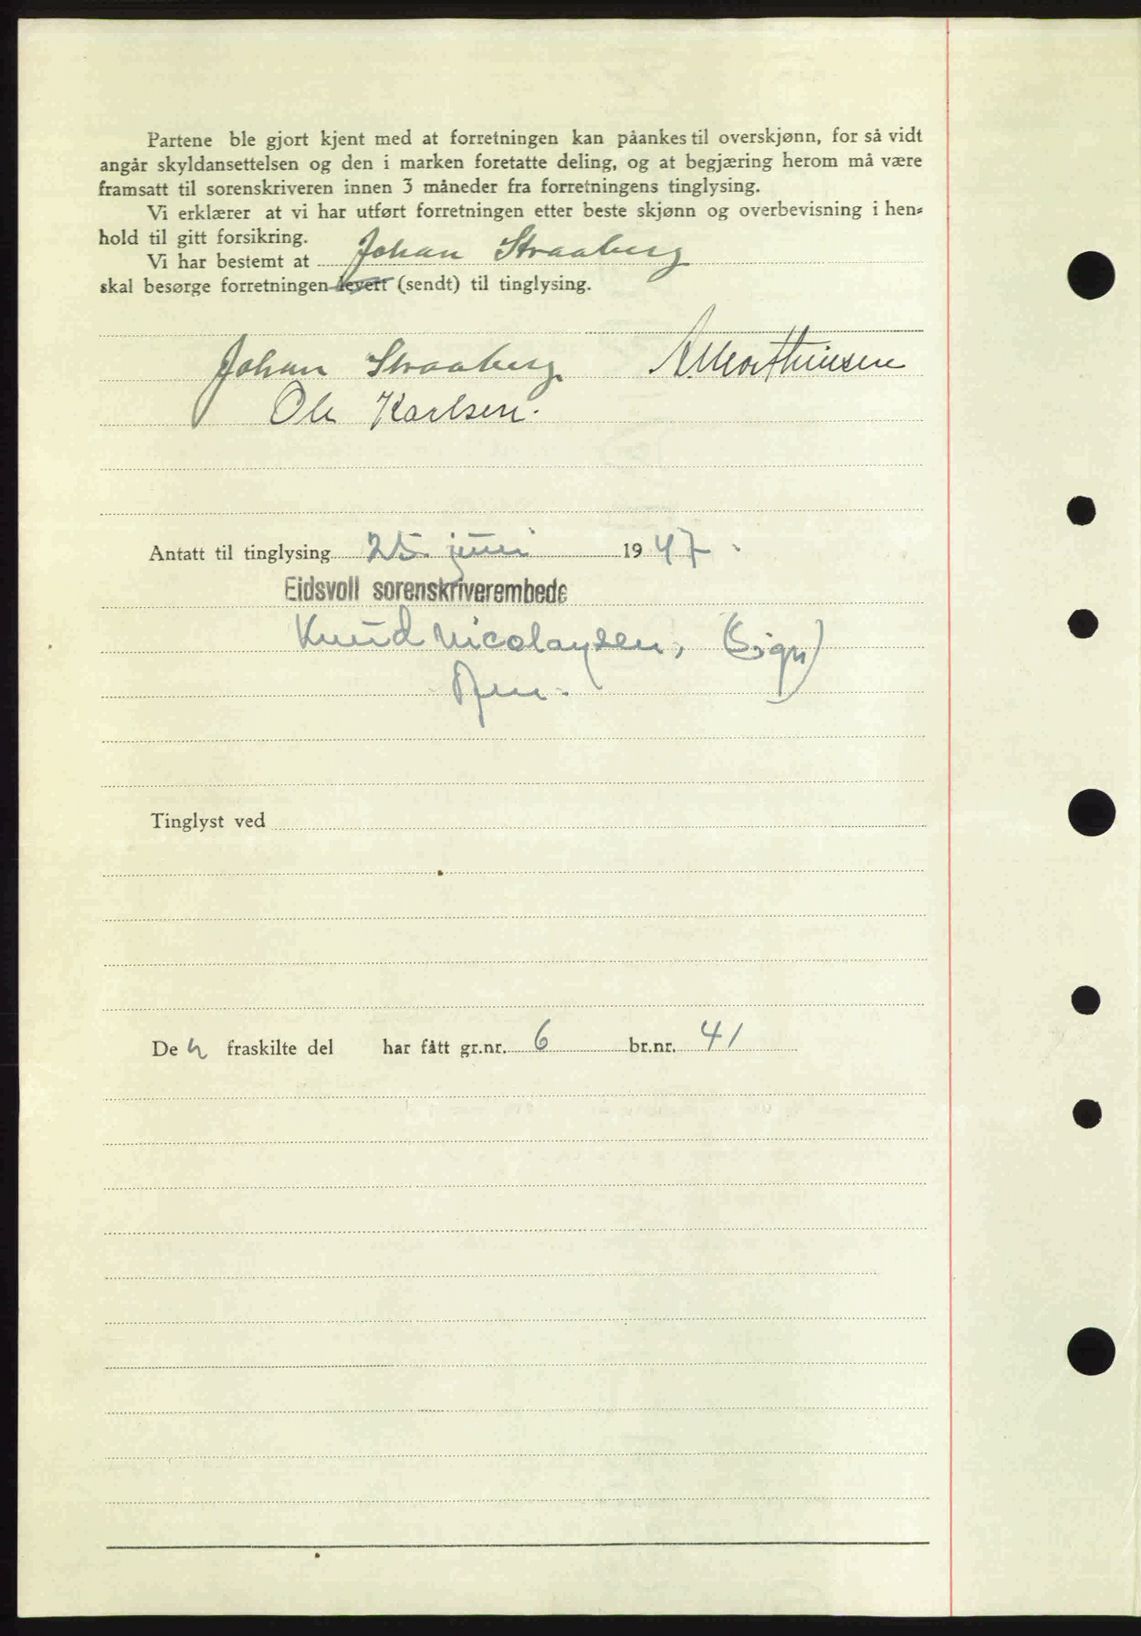 Partene ble gjort kjent med at forretningen kan påankes til overskjønn, for så vidt
angår skyldansettelsen og den i marken foretatte deling, og at begjæring herom må være
framsatt til sorenskriveren innen 3 måneder fra forretningens tinglysing.
Vi erklærer at vi har utført forretningen etter beste skjønn og overbevisning i hen-
hold til gitt forsikring.
Vi har bestemt at Johan Straaberg
skal besørge forretningen levert (sendt) til tinglysing.
Johan Straaberg. A. Morthinsen
Ole Karlsen.
Antatt til tinglysing 25. juni 1947.
Eidsvoll sorenskriverembede
Knud Nicolaysen, (sign)
Tinglyst ved
Den fraskilte del har fått gr.nr. 6 br.nr. 41